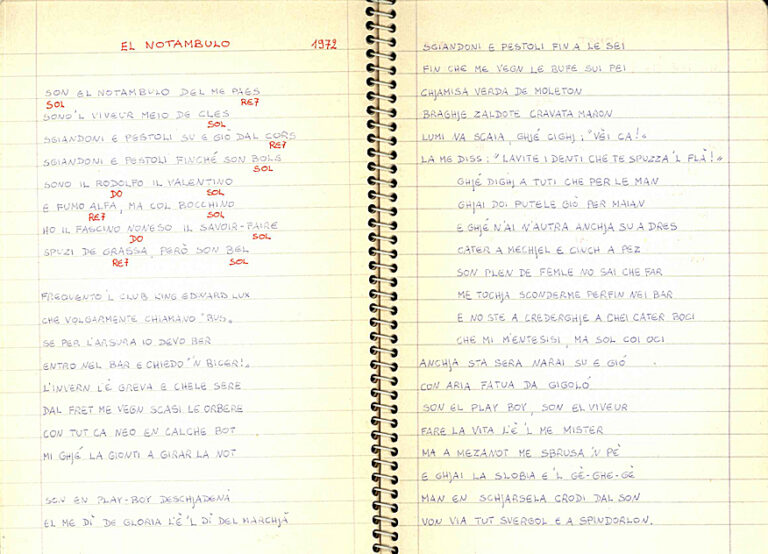 EL NOTAMBULO 1972
SON EL NOTAMBULO DEL ME PAES
SOL RE7
SONO'L VIVEUR MEIO DE CLES
SOL
SGIANDONI E PESTOLI SU E GIÒ DAL CORS
RE7
SGIANDONI E PESTOLI FINCHÉ SON BOLS
SOL
SONO IL RODOLFO IL VALENTINO
DO SOL
E FUMO ALFA, MA COL BOCCHINO
RE7 SOL
HO IL FASCINO NONESO IL SAVOIR-FAIRE
DO SOL
SPUZI DE GRASSA, PERÒ SON BEL
RE7 SOL
FREQUENTO 'L CLUB KING EDWARD LUX
CHE VOLGARMENTE CHIAMANO "BUS.
SE PER L'ARSURA IO DEVO BER
ENTRO NEL BAR E CHIEDO "'N BICER!.
L'INVERN L'È GREVA E CHELE SERE
DAL FRET ME VEGN SCASI LE ORBERE
CON TUT CA NEO EN CALCHE BOT
MI GHJÉ LA GIONTI A GIRAR LA NOT
SON EN PLAY-BOY DESCHJADENÀ
EL ME DÌ DE GLORIA L'È 'L DÌ DEL MARCHJÀ
SGIANDONI E PESTOLI FIN A LE SEI
FIN CHE ME VEGN LE BUFE SUI PEI
CHJAMISA VERDA DE MOLETON
BRAGHJE ZALDOTE CRAVATA MARON
LUMI NA SCAIA, GHJÉ CIGHJ: "VÈI CA!"
LA ME DISS: "LAVITE I DENTI CHE TE SPUZZA 'L FLÀ!"
GHJÉ DIGHJ A TUTI CHE PER LE MAN
GHJAI DOI PUTELE GIÒ PER MAIAN
E GHJÉ N'AI N'AUTRA ANCHJA SU A DRES
CATER A MECHJEL E CINCH A PEZ
SON PLEN DE FEMLE NO SAI CHE FAR
ME TOCHJA SCONDERME PERFIN NEI BAR
E NO STE A CREDERGHJE A CHEI CATER BOCI
CHE MI M'ENTESISI, MA SOL COI OCI
ANCHJA STA SERA NARAI SU E GIÓ
CON ARIA FATUA DA GIGOLÓ
SON EL PLAY BOY, SON EL VIVEUR
FARE LA VITA L'È 'L ME MISTER
MA A MEZANOT ME SBRUSA 'N PÈ
E GHJAI LA SLOBIA E 'L GÈ-GHE-GÈ
MAN EN SCHJARSELA CRODI DAL SON
VON VIA TUT SVERGOL E A SPINDORLON.